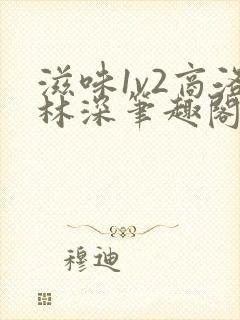 滋味1v2高洛
林深笔趣阁
穆迪